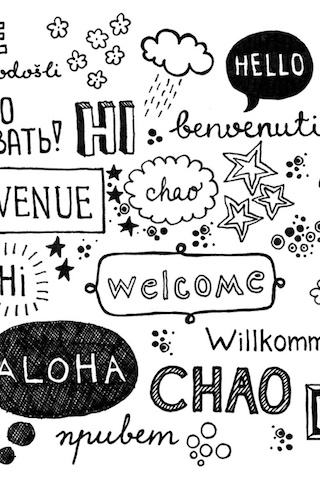 odošli
HELLO
HI
benvenuti
ВАТЬ!
VENUE
chao
Hi
welcome
Willkomm
ALOHA
CHAO
привет